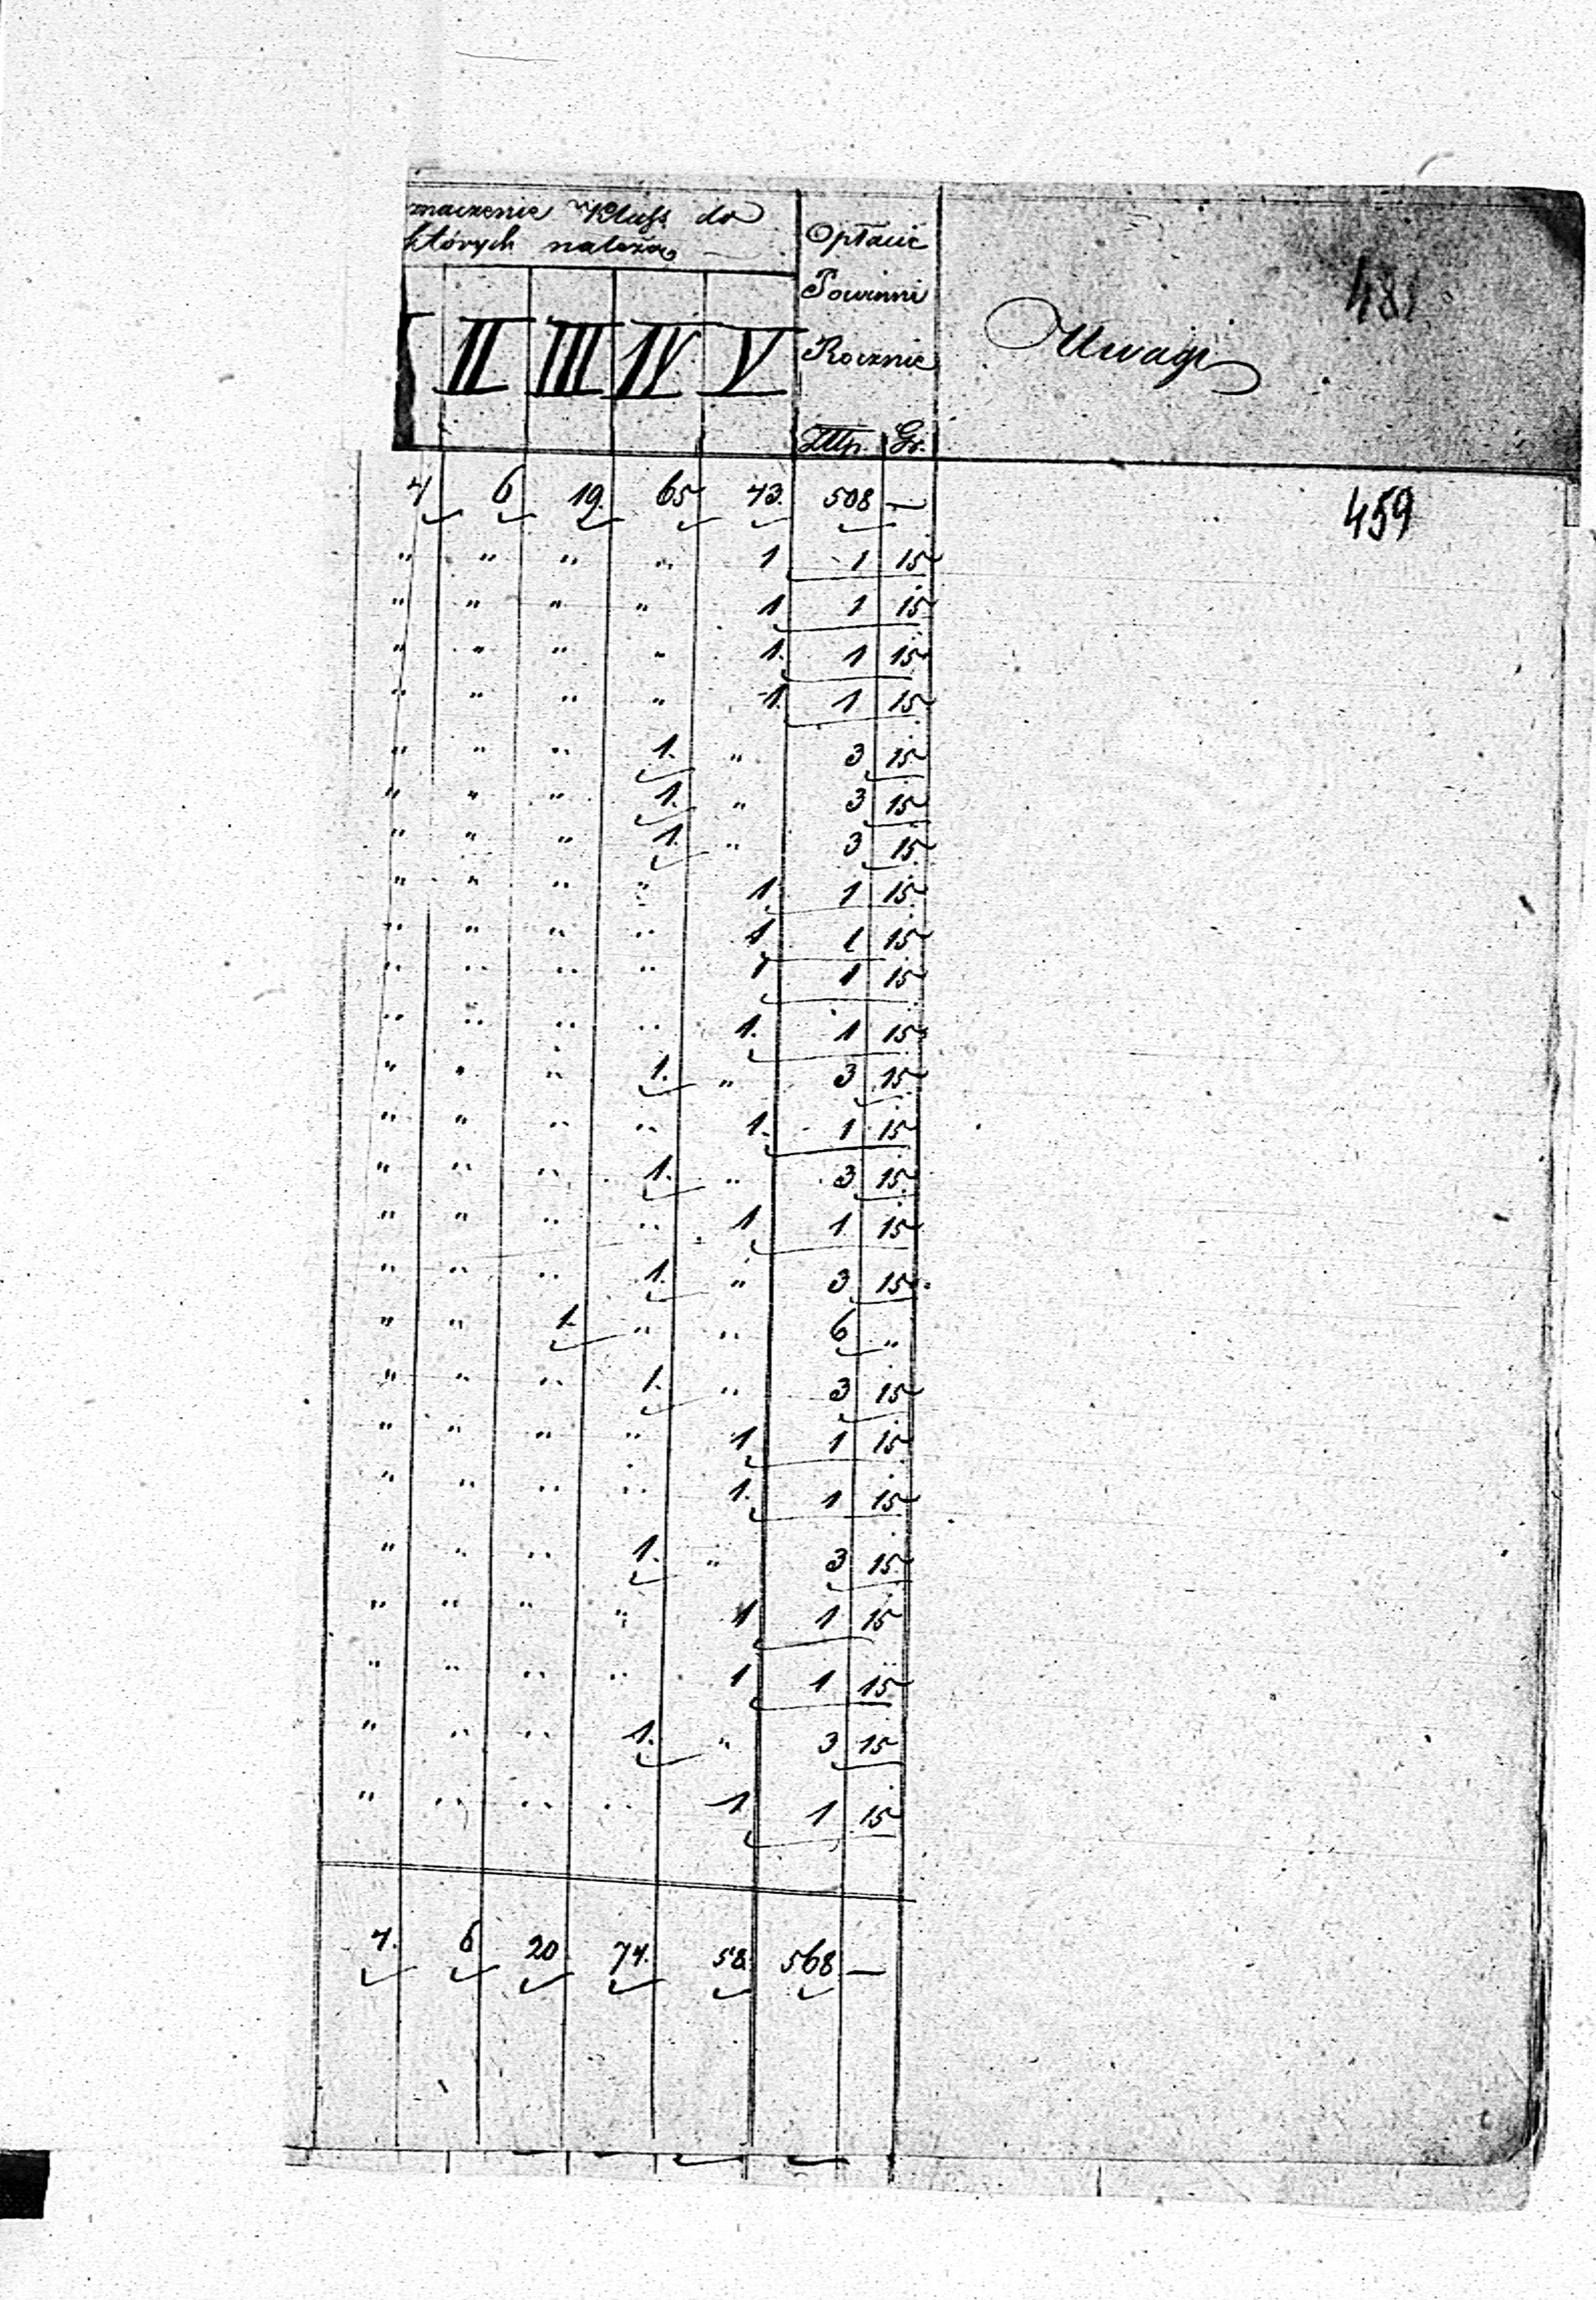 znaczenie Klass do
których należą
Opłacić
Powinni
Rocznie
Uwagi
I II III IV V
Złp. Gr.
4 6 19. 65 43. 508 —
" " " " 1 1 15
" " " " 1 1 15
" " " " 1. 1 15
" " " " 1. 1 15
" " " 1. " 3 15
" " " 1. " 3 15
" " " 1. " 3 15
" " " " 1. 1 15
" " " " 1 1 15
" " " " 1 1 15
" " " " 1. 1 15
" " " 1. " 3 15
" " " " 1. 1 15
" " " 1. " 3 15
" " " " 1 1 15
" " " 1. " 3 15
" " 1. " " 6 "
" " " 1. " 3 15
" " " " 1 1 15
" " " " 1. 1 15
" " " 1. " 3 15
" " " " 1 1 15
" " " " 1 1 15
" " " 1. " 3 15
" " " " 1 1 15
4. 6 20 74. 58. 568 —
459